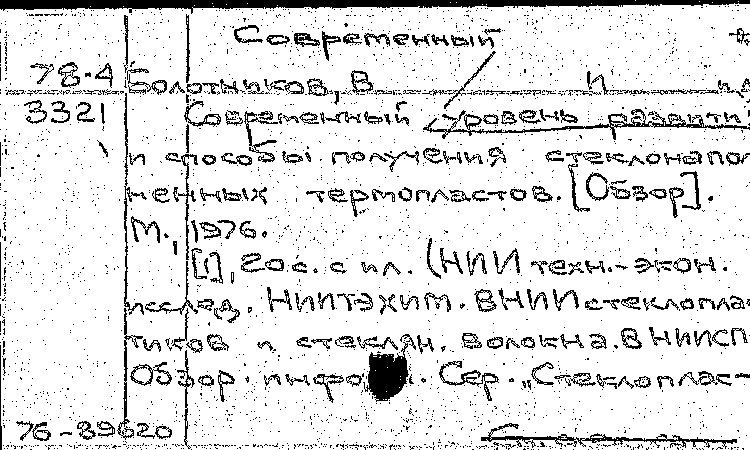 Современный
78-4 Болотников, В И и др
3321 Современный уровень развити
и способы получения стеклонапол
ненных термопластов. [Обзор].
М., 1976.
[1], 20с. с ил. (НИИ техн.-экон.
исслед. НИИТЭХИМ. ВНИИ стеклоплас
тиков и стеклян. волокна. ВНИИСП
Обзор. инфо . Сер. „Стеклоплас-
76-39620